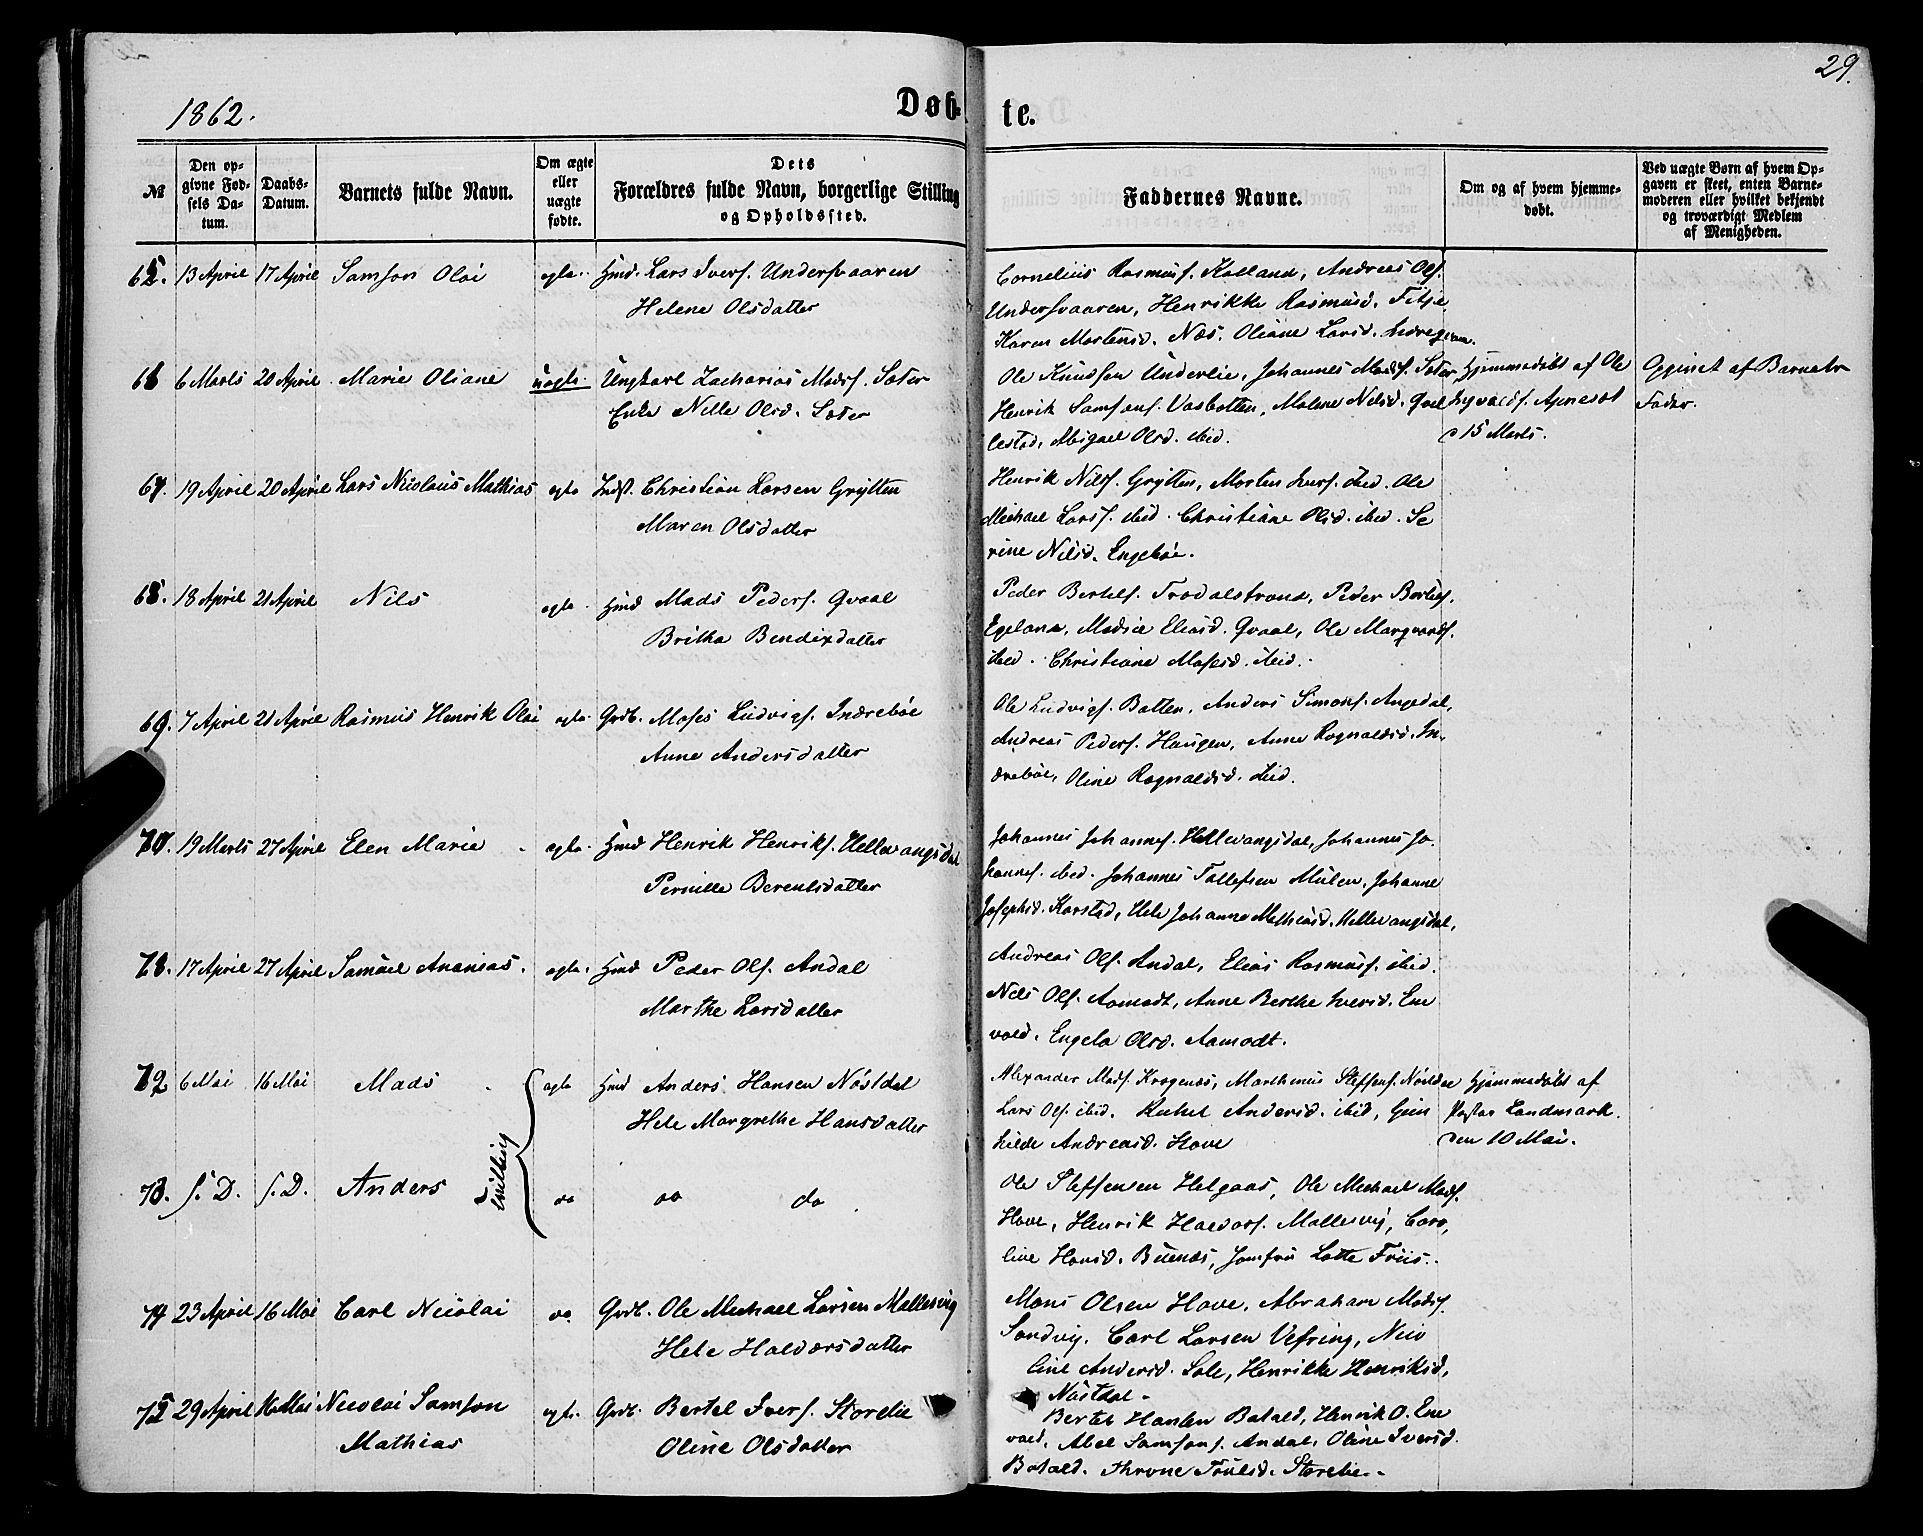 29.
1862.
Døbte.
№
Den opgivne Fødsels Datum.
Daabs-Datum.
Barnets fulde Navn.
Om ægte eller uægte fødte.
Dets Forældres fulde Navn, borgerlige Stilling og Opholdssted.
Faddernes Navne.
Om og af hvem hjemmedøbt.
Ved uægte Børn af hvem Opgaven er skeet, enten Barnemoderen eller hvilket bekjendt og troværdigt Medlem af Menigheden.
65. 13 April 17 April Samson Olai ægte. Hmd. Lars Ivers. Undersvaaren
Helene Olsdatter
Cornelius Rasmus. Kalland, Andreas Ols.
Undersvaaren, Henrikke Rasmusd. Fitje
Karen Mortensd. Næs. Oliane Larsd. Indregaven.
66 6 Marts 20 April Marie Oliane uægte. Ungkarl Zacharias Mads. Sæter
Enke Nille Olsd. Sæter
Ole Knudsen Underlie, Johannes Mads. Sæter,
Henrik Samsons. Vasbotten, Malene Nilsd. Qvel
lestad, Abigael Olsd. ibid.
Hjemmedøbt af Ole
Ingvalds. Apnesæt
d 15 Marts.
Opgivet af Barnets
Fader.
67. 19 April 20 April Lars Nicolaus Mathias ægte Indst. Christian Larsen Grytten
Maren Olsdatter
Henrik Nils. Grytten, Morten Ivers. ibid. Ole
Michael Lars. ibid. Christiane Olsd. ibid. Se
rine Nilsd. Engebøe.
68. 18 April 21 April Nils ægte. Hmd Mads Peders. Qvaal
Britha Bendixdatter
Peder Bertels. Frodalstrand, Peder Bertels.
Egeland, Madsie Eliasd. Qvaal, Ole Marqvards.
ibid. Christiane Mosesd. ibid.
69. 7 April 21 April Rasmus Henrik Olai ægte. Grdb. Moses Ludvigs. Indrebøe
Anne Andersdatter
Ole Ludvigs. Botten, Anders Simons. Angedal,
Andreas Peders. Haugen, Anne Rognaldsd. In
drebøe, Oline Rognaldsd. ibid.
70. 19 Marts 27 April Elen Marie ægte. Hmd Henrik Henriks. Hellevangsdal
Pernille Berentsdatter
Johannes Johannes. Hellevangsdal, Johannes Jo
hannes. ibid. Johannes Tollefsen Mulen, Johanne
Josephsd. Karstad, Hele Johanna Mathiasd. Hellevangsdal,
71. 17 April 27 April Samuel Ananias. ægte. Hmd Peder Ols. Andal
Marthe Larsdatter
Andreas Ols. Andal, Elias Rasmus. ibid.
Nils Ols. Aamodt, Anne Berthe Iversd. Ene
vold, Engela Olsd. Aamodt.
72 6 Mai 16 Mai Mads ægte Hmd Anders Hansen Nøstdal
Hele Margrethe Hansdatter
Alexander Mads. Krogenæs, Marthinus Steffens. Nøstdal
Lars Ols. ibid. Rakel Andersd. ibid, Gun
hilde Andreasd. Hove
Hjemmedøbt af
Pastor Landmark.
den 10 Mai.
Tvilling
73. s. D. s. D. Anders do do do
Ole Steffensen Helgaas, Ole Michael Mads.
Hove, Henrik Haldors. Mallesvig, Caro
line Hansd. Buenæs, Jomfru Lotte Friis.
74 23 April 16 Mai Carl Nicolai do. Grdb. Ole Michael Larsen Mallesvig
Hele Haldorsdatter
Mons Olsen Hove, Abraham Mads.
Sandvig, Carl Larsen Vefring, Nico
line Andersd. Sole, Henrikke Henriksd.
Nøstdal.
75 29 April 16 Mai Nicolai Samson
Mathias
ægte. Grdb. Bertel Ivers. Storelie
Oline Olsdatter
Bertel Hansen Batald, Henrik O. Ene
vold, Abel Samsons. Andal, Oline Iversd.
Batald. Throne Poulsd. Storelie.